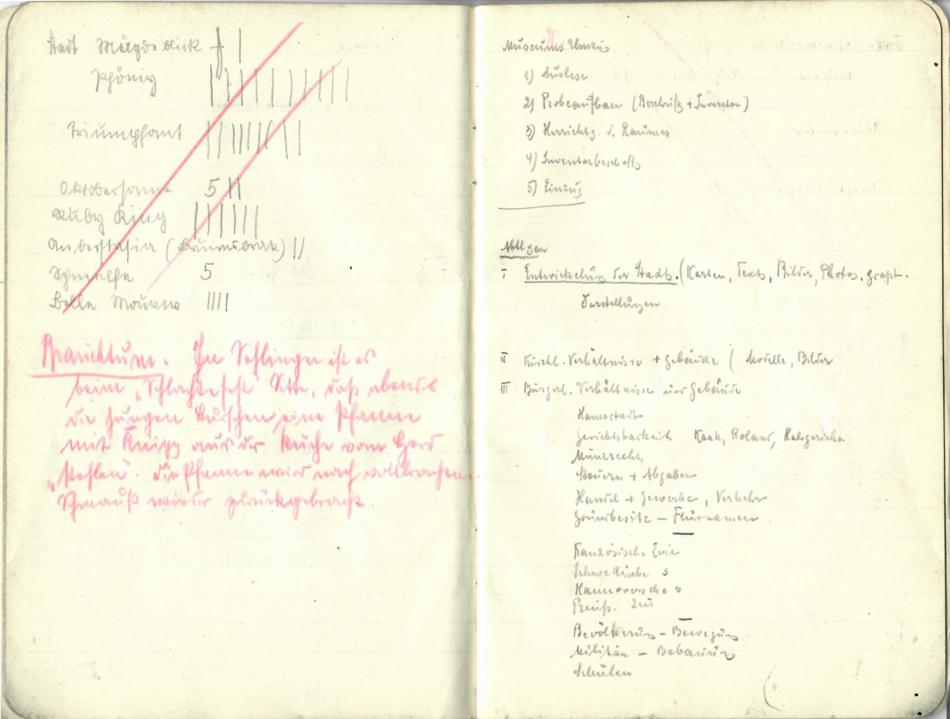 Stadt
Phönix
Triumphant
5
Ruby King
(
5
Belle
Brauchtum. In Sehlingen ist es
beim „Schlachtefest“ Sitte, daß abends
die jungen Burschen eine Pfanne
mit Knipp aus der Küche vom Herd
„stehlen“. Die Pfanne wird nach vollbrachten
Schmauß wieder zurückgebracht.
Museums Umzug
1) Auslese
2) Probeaufbau (Beschriftg + Inventar)
3) Herrichtg. d. Raumes
4) Inventarbeschaffg
5) Einzug
Abtlgen
I Entwickelung der Stadt. (Karten, Texte, Bilder, Photos, graph.
Darstellungen
II Kirchl. Verhältnisse + Gebäude ( Modelle, Bilder
III Bürgerl. Verhältnisse und Gebäude
Hansestadt
Gerichtsbarkeit Kaak, Roland, Halsgericht
Münzrecht
Steuern + Abgaben
Handel + Gewerbe, Verkehr
Grundbesitz – Flurnamen
Französische Zeit
Schwedische
Hannoversche
Preuß. Zeit
Bevölkerung – Bewegung
Militär – Bebauung
Schulen